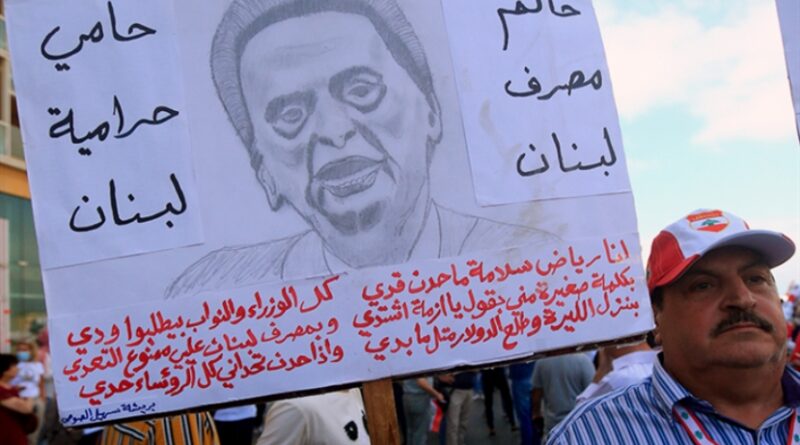 حاكم
مصرف
لبنان
حامي
حرامية
لبنان
انا رياض سلامة ما حدن قدي
بكلمة صغيرة مني بقول يا ازمة اشتدي
بنزل الليرة وطلع الدولار متل ما بدي
كل الوزراء والنواب بيطلبوا ودي
وبمصرف لبنان علي ممنوع التعدي
واذا حدن تحداني كل الرؤساء حدي
بريشة